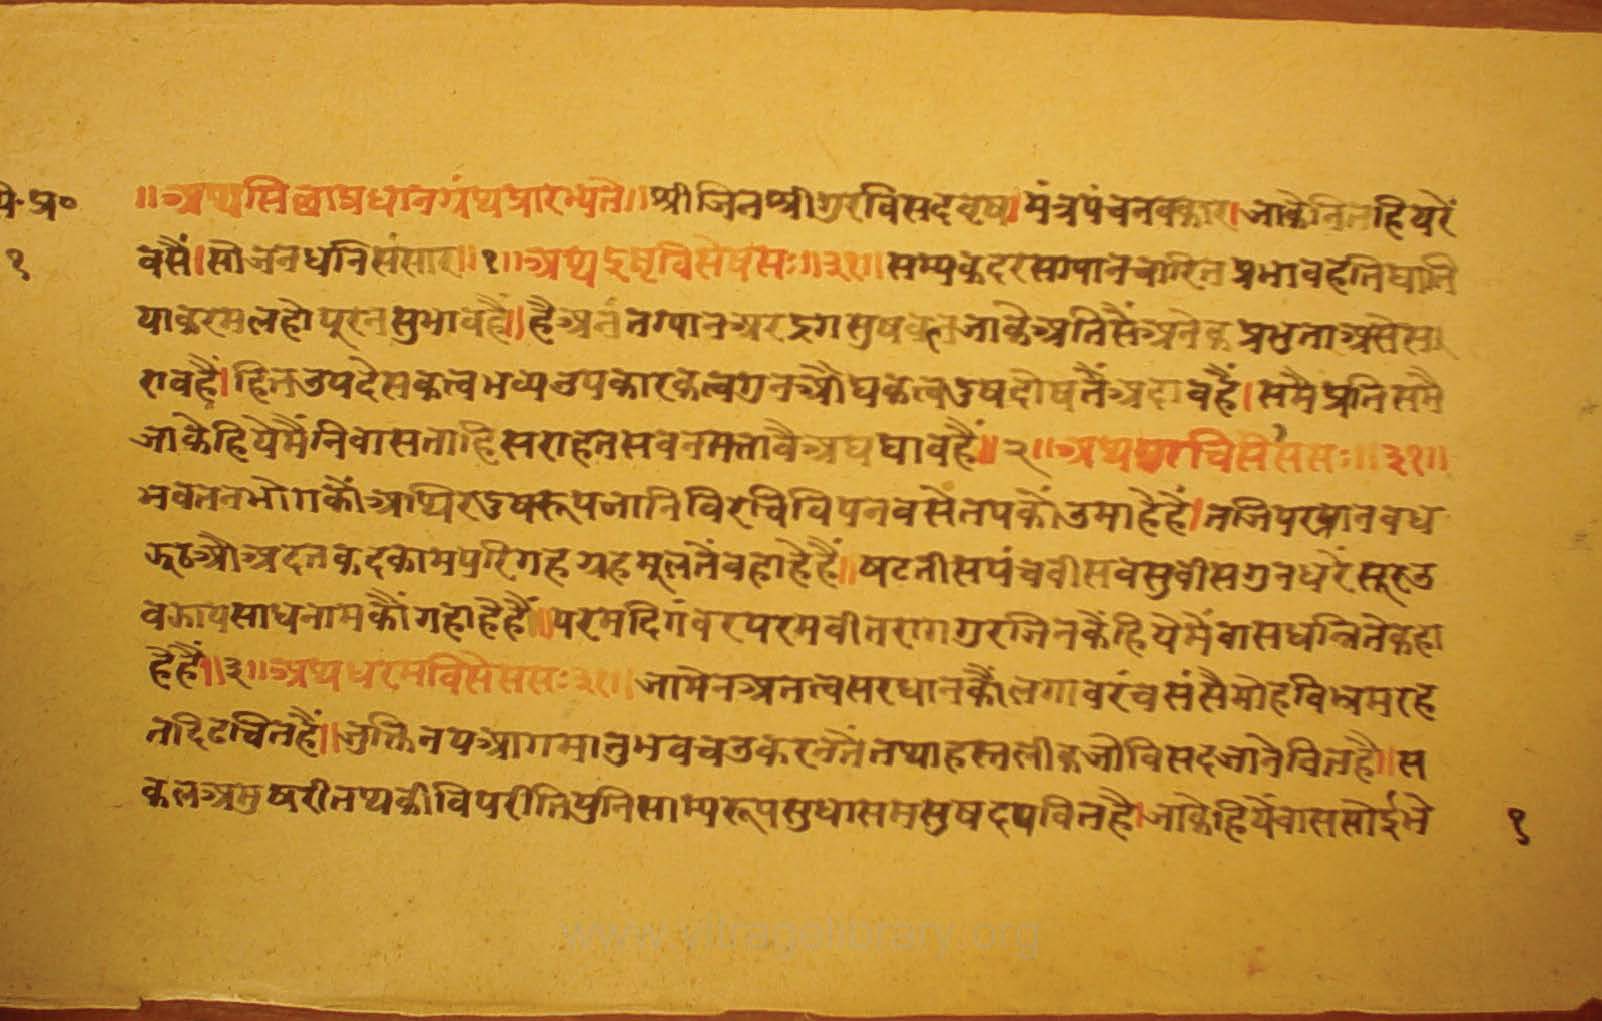 ॥अथ्यसिष्याप्रधानग्रंथप्रारभ्यतै॥श्रीजिनश्रीगुरविसदवृष।मंत्रपंचनवक्कार।जाकैनितहियरैं
वसैं।सोजनधनिसंसार॥१॥अथ्यइष्टविसेषसः॥३१॥सम्यकदरसग्यानचारित प्रभावहेतिघाति
याकरमलहोपूरनसुभावहैं॥हैअनंतग्यानअरद्रगसुषवलजाकैअतिसैंअनेकप्रभुताअसैस
रावहैं।हितउपदेसकत्वभव्यउपकारकत्वगुनऔघकत्वदुषदोषतैंअदावहैं।समैप्रतिसमै
जाकैहियेमैंनिवासताहिसराहेतसवनमतावैअघघावहैं॥२॥अथ्यगुरविसेससः॥३१॥
भवतनभोगकौंअथिरदुषरूपजानिविरचिविपनवसैंतपकौंउमाहैहैं।तजिपरप्रानवध
झूठऔअदतकुदकामपरिगहग्रहमूलतैंवहाहैहैं॥षटतीसपंचवीसवसुवीसगुनधरैंसूरउ
वझायसाधनामकौंगहाहैहैं॥परमदिगंवरपरमवीतरागगुरजिनकैंहियेमैंवासधन्नितेकहा
हैहैं॥३॥अथ्यधरमविसैससः३१॥जामैनअनत्वसरधानकौंलगावरंचसंसैमोहविभ्रमरहे
तदिढचितहैं॥जुक्तिनयआगमानुभवचउकरनतैंतथाहस्तलीकजौविसदजानेवितहै॥स
कलअमुषरीतथ्यकीविपरीतिपुनिसाम्यरूपसुधासमसुषदपवितहै।जाकैहियेंवाससोईभे
१
१
www.vitragelibrary.org